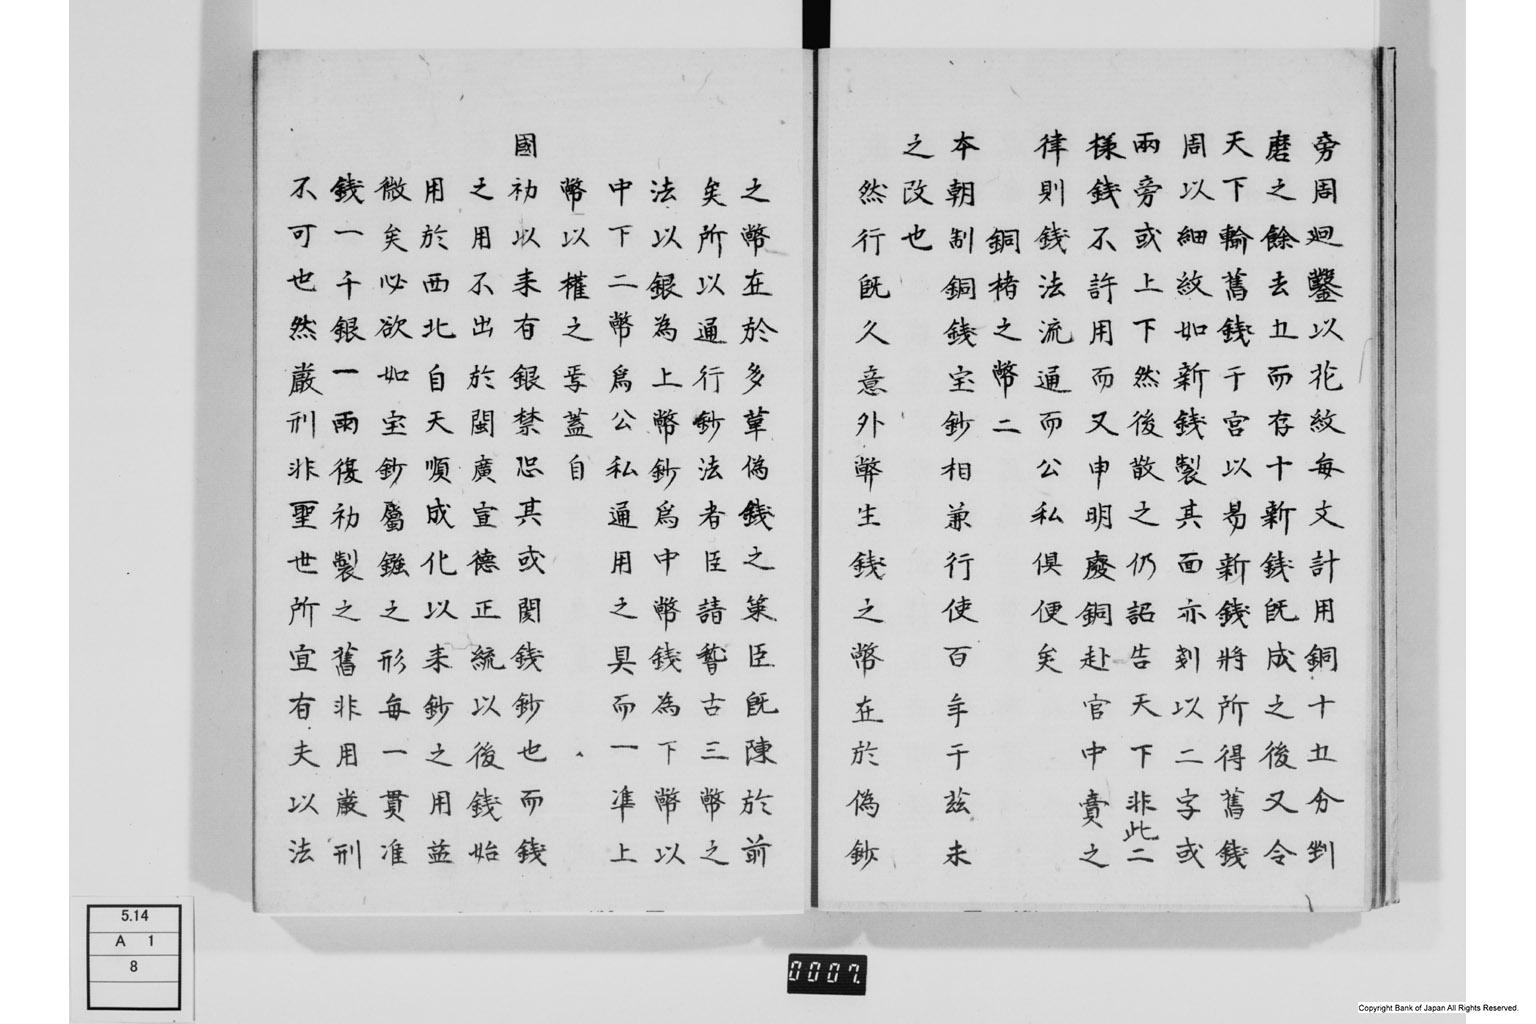 旁周迴鑿以花紋每文計用銅十五分剉
磨之餘去五而存十新錢既成之後又令
天下輸舊錢于宮以易新錢將所得舊錢
周以細紋如新錢製其面亦刻以二字或
兩旁或上下然後散之仍詔告天下非此二
樣錢不許用而又申明廢銅赴官中賣之
律則錢法流通而公私俱便矣
銅楮之幣二
本朝制銅錢宝鈔相兼行使百年于茲未
之改也
然行既久意外弊生錢之幣在於偽鈔
之幣在於多革偽錢之策臣既陳於前
矣所以通行鈔法者臣請稽古三幣之
法以銀為上幣鈔爲中幣錢為下幣以
中下二幣爲公私通用之具而一准上
幣以權之焉蓋自
國初以来有銀禁恐其或閡錢鈔也而錢
之用不出於閩廣宣德正統以後錢始
用於西北自天順成化以来鈔之用益
微矣必欲如宝鈔屬鏹之形每一貫准
錢一千銀一兩復初製之舊非用嚴刑
不可也然嚴刑非聖世所宜有夫以法
5.14
A 1
8
0007.
Copyright Bank of Japan All Rights Reserved.